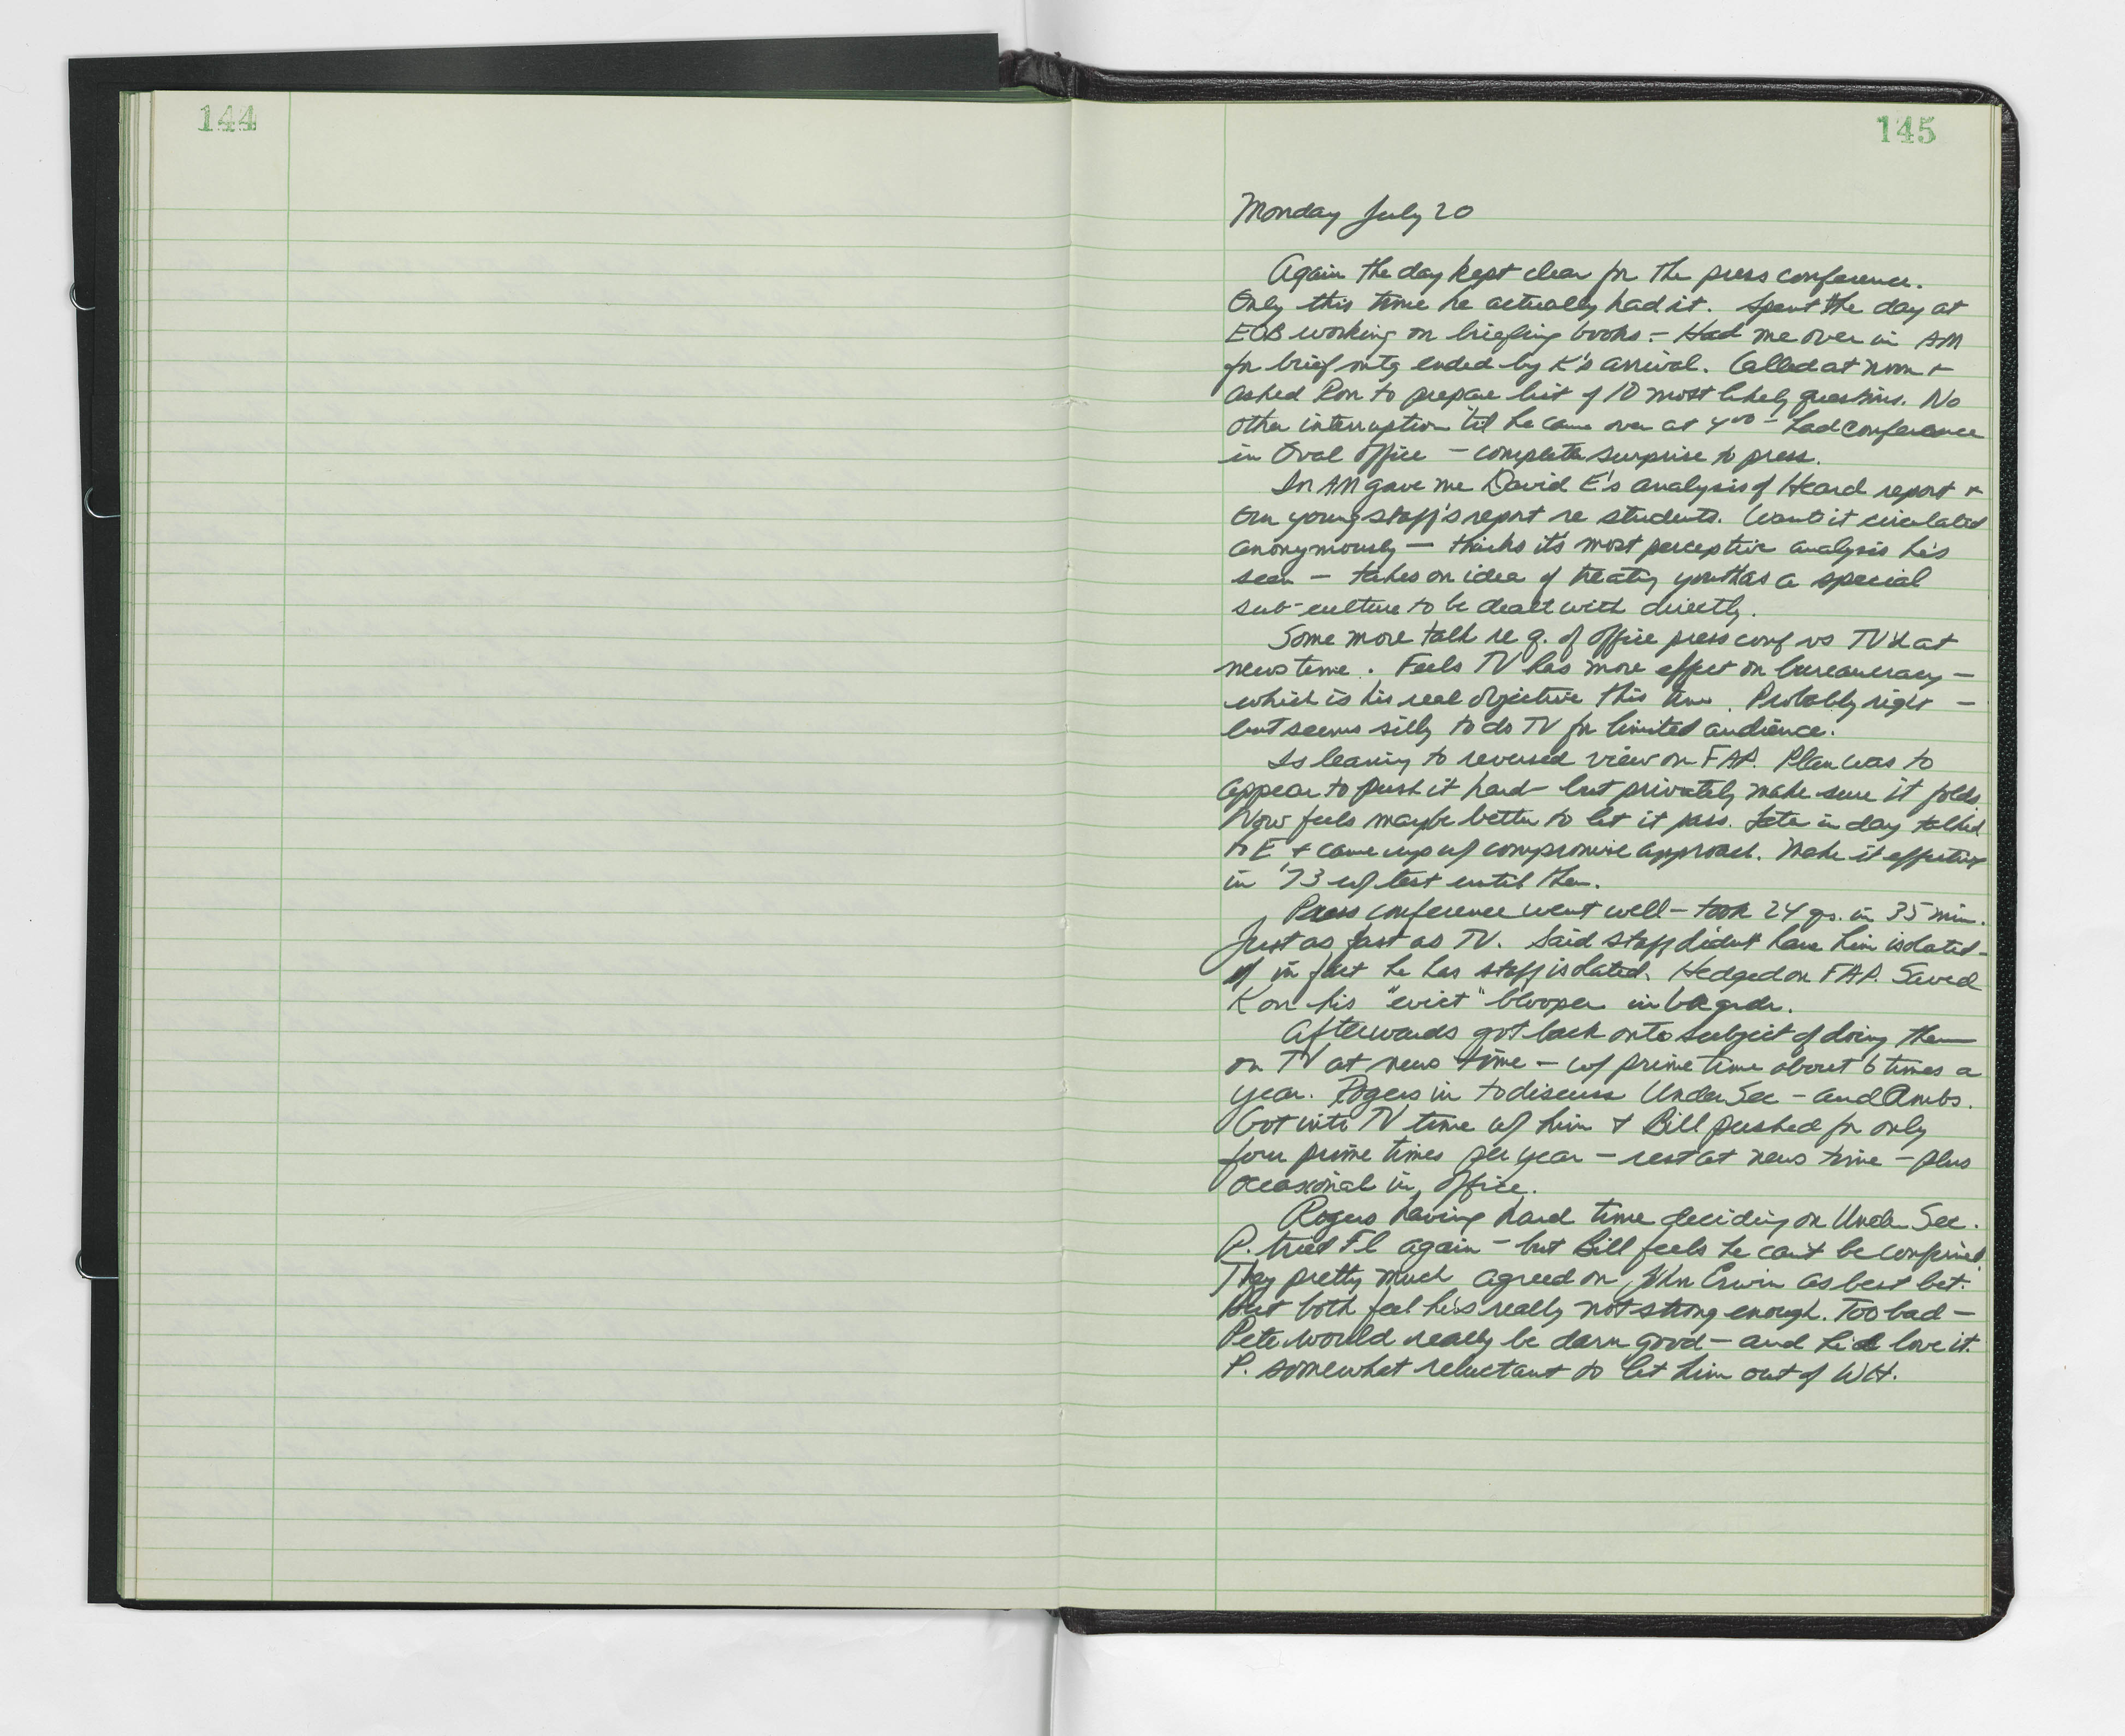 144
145
Monday July 20
Again the day kept clear for the press conference.
Only this time he actually had it. Spent the day at
EOB working on briefing books - Had me over in AM
for brief mtg ended by K's arrival. Called at noon +
asked Ron to prepare list of 10 most likely questions. No
other interruption 'til he came over at 4⁰⁰ - had conference
in Oval Office - complete surprise to press.
In AM gave me David E's analysis of Heard report +
our young staff's report re students. Wants it circulated
anonymously - thinks it's most perceptive analysis he's
seen - takes on idea of treating youth as a special
sub-culture to be dealt with directly.
Some more talk re q. of office press conf vs TV'd at
news time. Feels TV has more effect on bureaucracy -
which is his real objective this time. Probably right -
but seems silly to do TV for limited audience.
Is leaning to reversed view on FAP. Plan was to
appear to push it hard - but privately make sure it folds.
Now feels maybe better to let it pass. Late in day talked
to E + came up w/ compromise approach. Make it effective
in '73 w/ test until then.
Press conference went well - took 24 qs. in 35 min.
Just as fast as TV. Said staff didn't have him isolated -
in fact he has staff isolated. Hedged on FAP. Saved
K on his "evict" blooper in bkgrdr.
Afterwards got back onto subject of doing them
on TV at news time - w/ prime time about 6 times a
year. Rogers in to discuss Under Sec - and Ambs.
Got into TV time w/ him + Bill pushed for only
four prime times per year - rest at news time - plus
occasional in office.
Rogers having hard time deciding on Under Sec.
P. tried Fl again - but Bill feels he can't be confirmed.
They pretty much agreed on John Erwin as best bet.
But both feel he's really not strong enough. Too bad -
Pete would really be darn good - and he'd love it.
P. somewhat reluctant to let him out of WH.